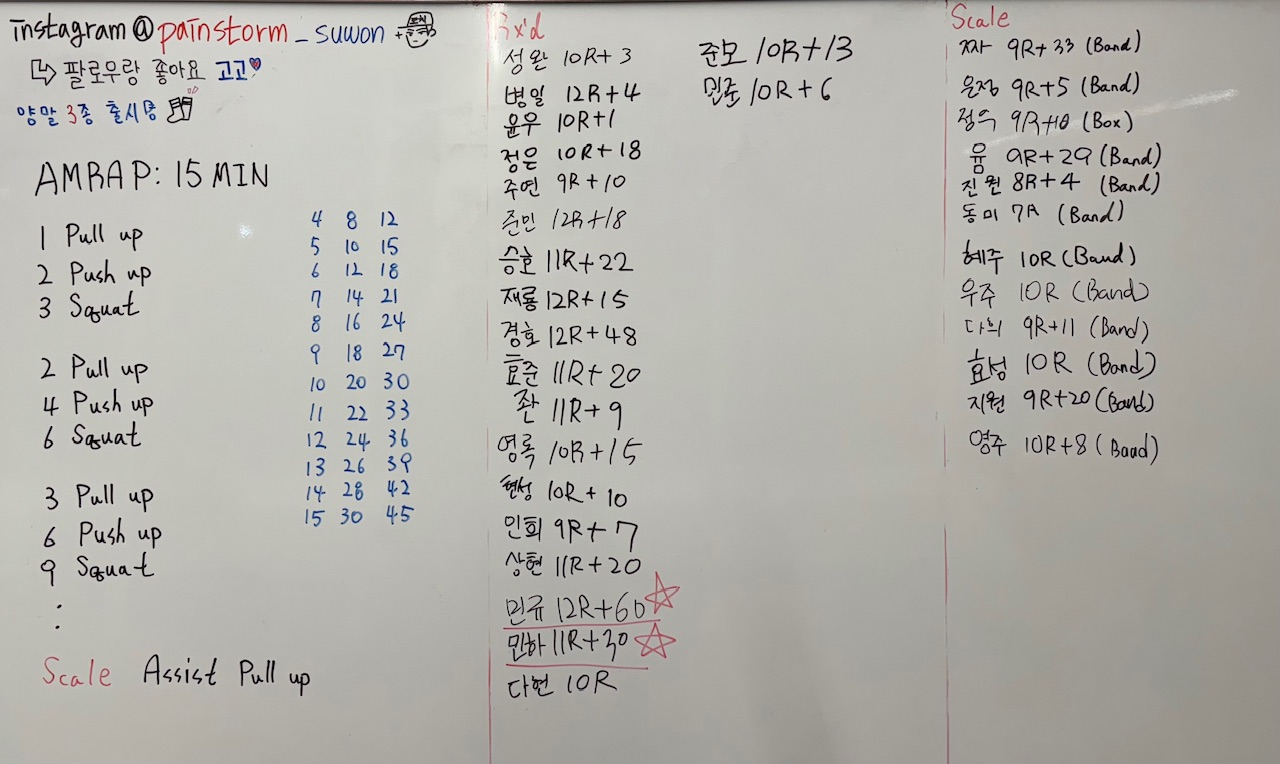 instagram@painstorm_suwon +
팔로우랑 좋아요 고고
양말 3종 출시중
AMRAP: 15 MIN
1 Pull up
2 Push up
3 Squat
2 Pull up
4 Push up
6 Squat
3 Pull up
6 Push up
9 Squat
:
4 8 12
5 10 15
6 12 18
7 14 21
8 16 24
9 18 27
10 20 30
11 22 33
12 24 36
13 26 39
14 28 42
15 30 45
Scale Assist Pull up
Rx'd
성완 10R+3
병일 12R+4
윤우 10R+1
정은 10R+18
주연 9R+10
준민 12R+18
승호 11R+22
재룡 12R+15
경호 12R+48
효준 11R+20
좐 11R+9
영록 10R+15
현성 10R+10
인회 9R+7
상현 11R+20
민규 12R+60
민하 11R+30
다현 10R
준모 10R+13
민준 10R+6
Scale
짜 9R+33 (Band)
은정 9R+5 (Band)
정욱 (Box)
윰 9R+29 (Band)
진원 8R+4 (Band)
동미 7R (Band)
혜주 10R (Band)
우주 10R (Band)
다희 9R+11 (Band)
효성 10R (Band)
지원 9R+20 (Band)
영주 10R+8 (Band)